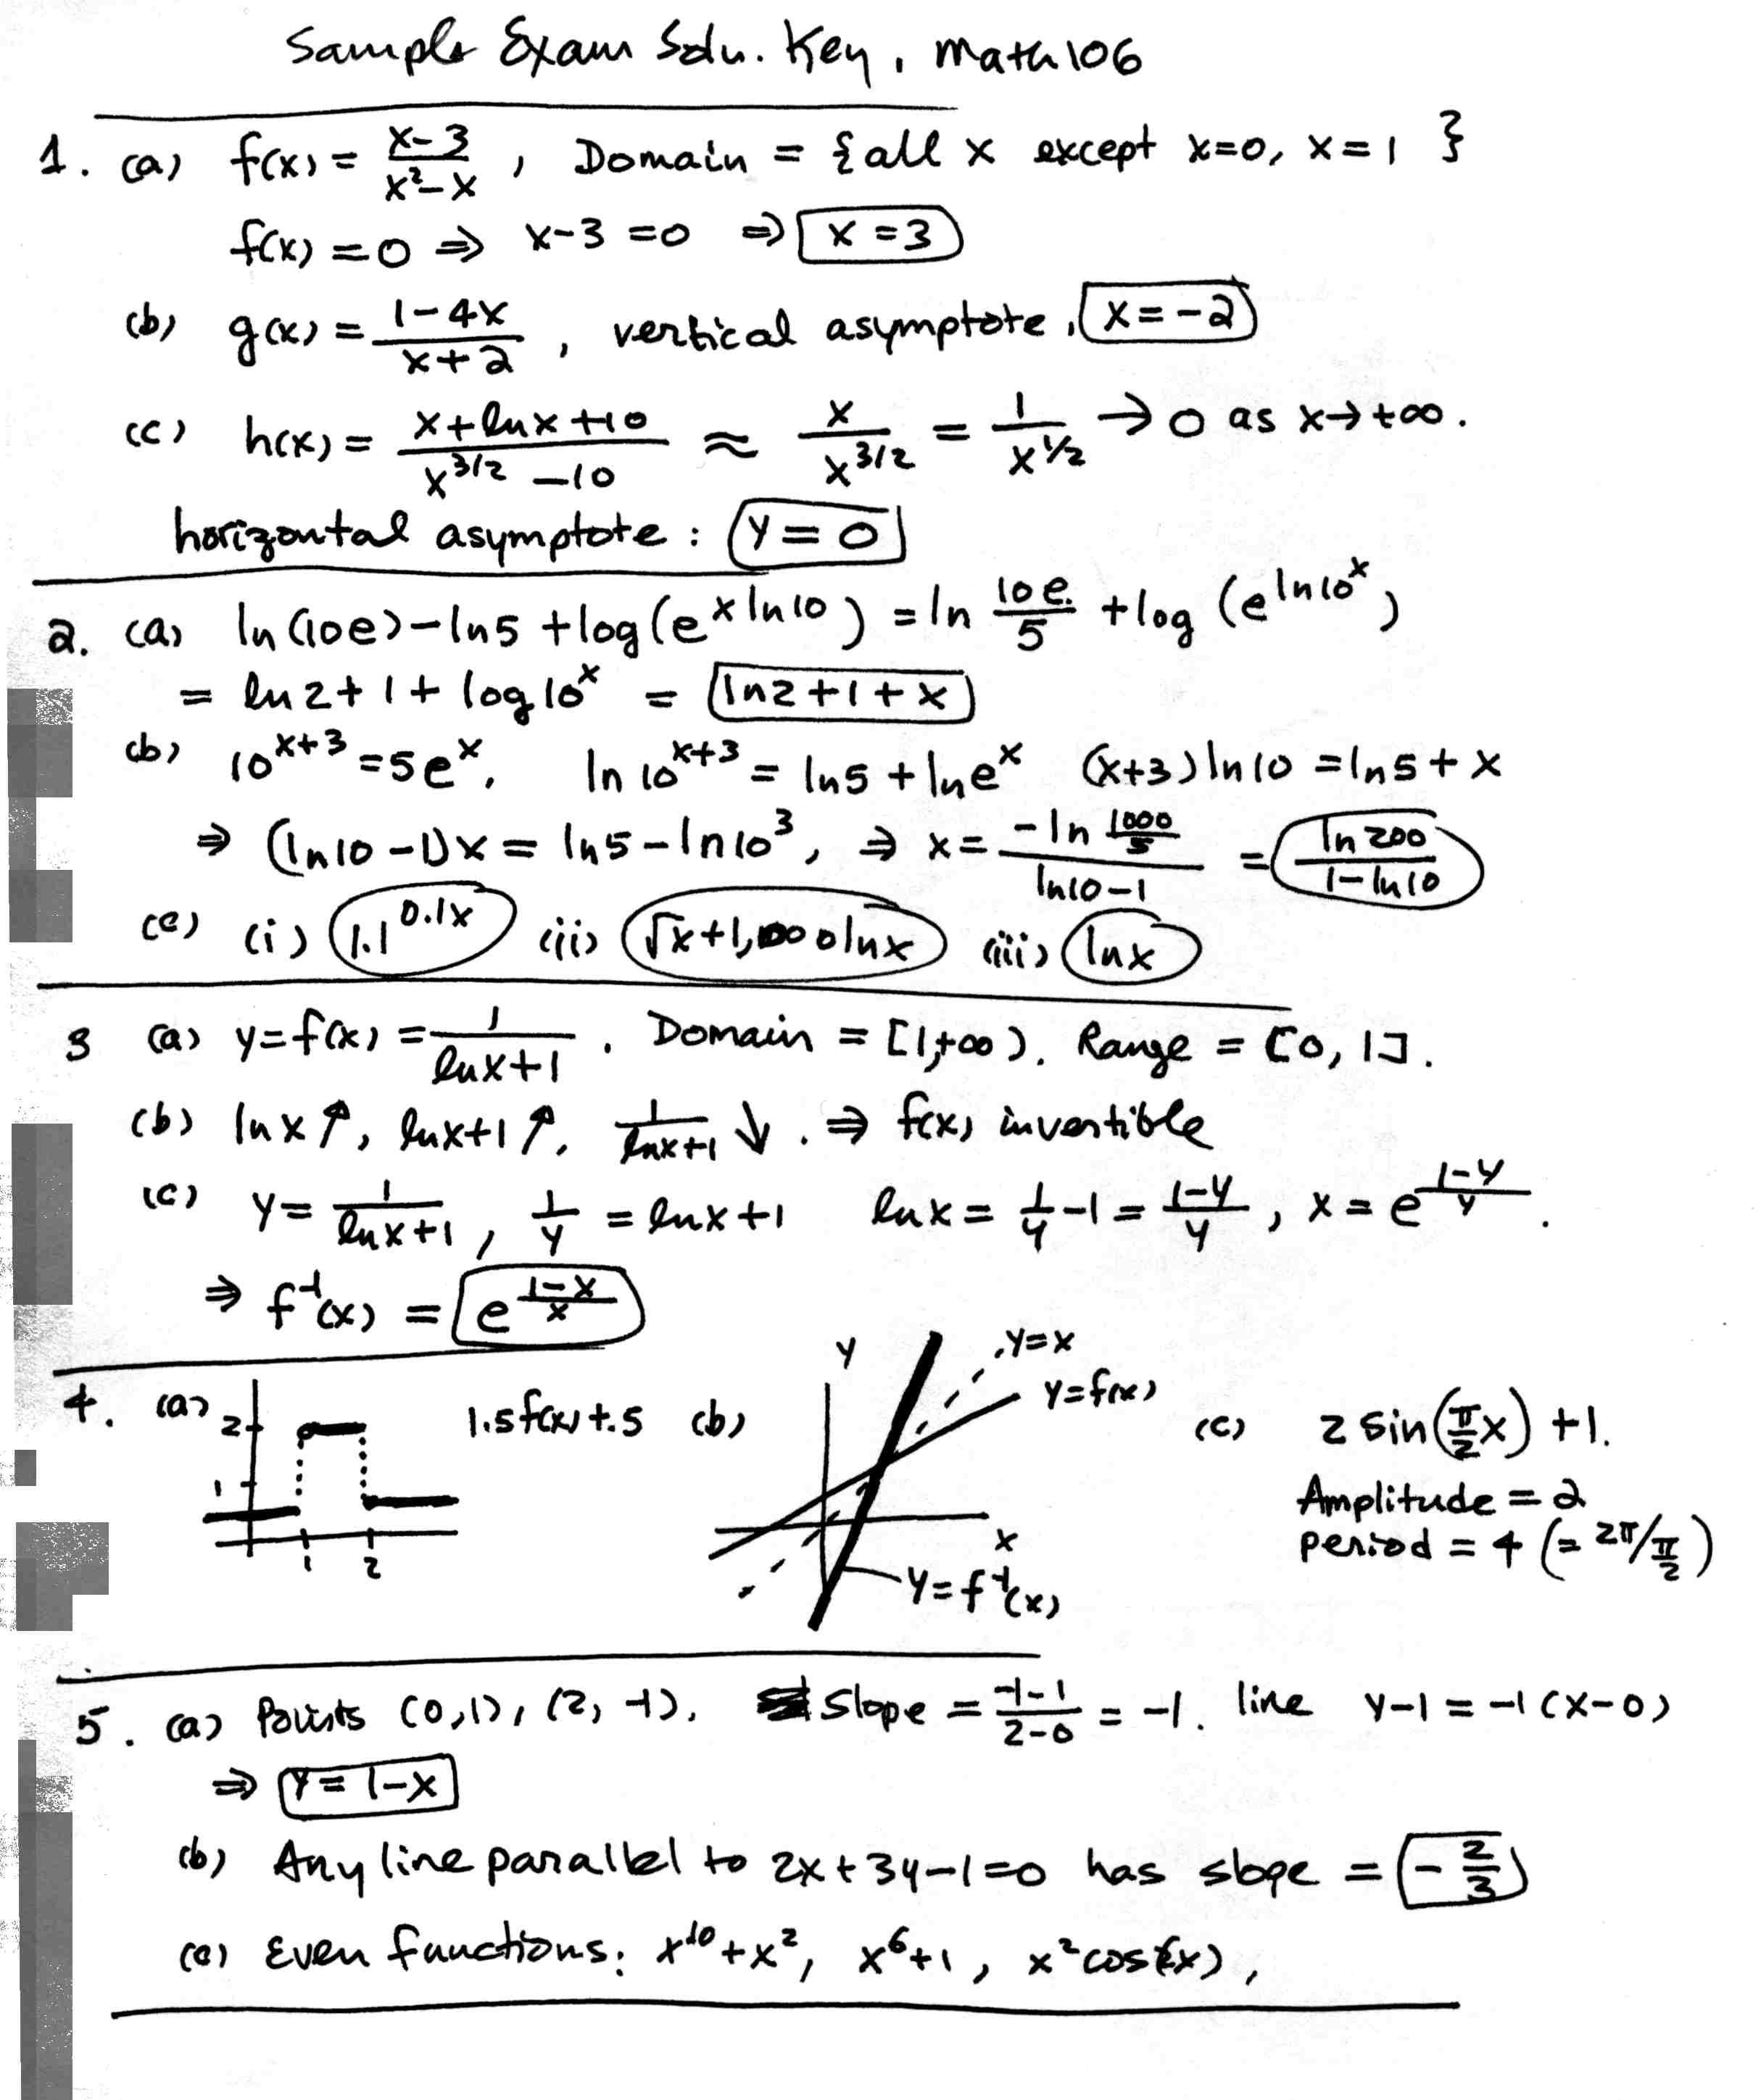 Sample Exam Soln. Key, Math 106
1. (a) f(x) = (x-3)/(x²-x), Domain = {all x except x=0, x=1 }
f(x) = 0 ⇒ x-3 =0 ⇒ x =3
(b) g(x) = (1-4x)/(x+2), vertical asymptote, x = -2
(c) h(x) = (x+lnx+10)/(x^{3/2} -10) ≈ x/x^{3/2} = 1/x^{1/2} → 0 as x→+∞.
horizontal asymptote: y = 0
2. (a) ln(10e)-ln5 +log(e^{x ln10}) = ln 10e/5 +log (e^{ln10^x})
= ln2+1+ log10^x = ln2+1+x
(b) 10^{x+3} =5e^x, ln 10^{x+3} = ln5 + lne^x (x+3)ln10 =ln5+x
⇒ (ln10 -1)x = ln5-ln10³, ⇒ x= (-ln 1000/5)/(ln10-1) = (ln 200)/(1-ln10)
(c) (i) 1.1^{0.1x} (ii) √x+1,000lnx (iii) lnx
3 (a) y=f(x) = 1/(lnx+1). Domain = [1,+∞). Range = [0, 1].
(b) lnx↑, lnx+1↑, 1/(lnx+1) ↓. ⇒ f(x) invertible
(c) y= 1/(lnx+1), 1/y = lnx+1 lnx= 1/y -1 = (1-y)/y, x = e^{(1-y)/y}.
⇒ f⁻¹(x) = e^{(1-x)/x}
4. (a) 2 1 1 2 1.5f(x)+.5 (b) y y=x y=f(x) x y=f⁻¹(x) (c) 2 sin(π/2 x) +1.
Amplitude = 2
period = 4 (= 2π/(π/2))
5. (a) Points (0,1), (2, -1), Slope = (-1-1)/(2-0) = -1. line y-1 = -1(x-0)
⇒ y = 1-x
(b) Any line parallel to 2x+3y-1=0 has slope = -2/3
(c) Even functions: x^{10}+x², x⁶+1, x²cos(x),